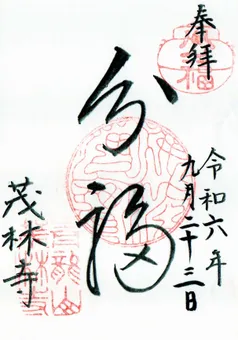 奉拝
令和六年
九月二十三日
分福
茂林寺